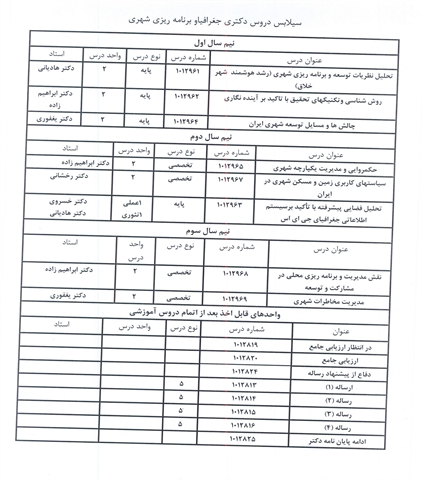 سیلابس دروس دکتری جغرافیاو برنامه ریزی شهری
نیم سال اول
عنوان درس شماره درس نوع درس واحد درس استاد
تحلیل نظریات توسعه و برنامه ریزی شهری (رشد هوشمند شهر خلاق) ۱۰۱۲۹۶۱ پایه ۲ دکتر هادیانی
روش شناسی وتکنیکهای تحقیق با تاکید بر آینده نگاری ۱۰۱۲۹۶۲ پایه ۲ دکتر ابراهیم زاده
چالش ها و مسایل توسعه شهری ایران ۱۰۱۲۹۶۴ پایه ۲ دکتر یغفوری
نیم سال دوم
عنوان درس شماره درس نوع درس واحد درس استاد
حکمروایی و مدیریت یکپارچه شهری ۱۰۱۲۹۶۵ تخصصی ۲ دکتر ابراهیم زاده
سیاستهای کاربری زمین و مسکن شهری در ایران ۱۰۱۲۹۶۷ تخصصی ۲ دکتر رخشانی
تحلیل فضایی پیشرفته با تأکید برسیستم اطلاعاتی جغرافیای جی ای اس ۱۰۱۲۹۶۳ پایه ۱عملی ۱تئوری دکتر خسروی دکتر هادیانی
نیم سال سوم
عنوان درس شماره درس نوع درس واحد درس استاد
نقش مدیریت و برنامه ریزی محلی در مشارکت و توسعه ۱۰۱۲۹۶۸ تخصصی ۲ دکتر ابراهیم زاده
مدیریت مخاطرات شهری ۱۰۱۲۹۶۹ تخصصی ۲ دکتر یغفوری
واحدهای قابل اخذ بعد از اتمام دروس آموزشی
عنوان شماره درس نوع درس واحد درس استاد
در انتظار ارزیابی جامع ۱۰۱۲۸۱۹
ارزیابی جامع ۱۰۱۲۸۲۰
دفاع از پیشنهاد رساله ۱۰۱۲۸۲۴
ارساله (۱) ۱۰۱۲۸۱۳ ۵
رساله (۲) ۱۰۱۲۸۱۴ ۵
رساله (۳) ۱۰۱۲۸۱۵ ۵
رساله (۴) ۱۰۱۲۸۱۶ ۵
ادامه پایان نامه دکتر ۱۰۱۲۸۲۵